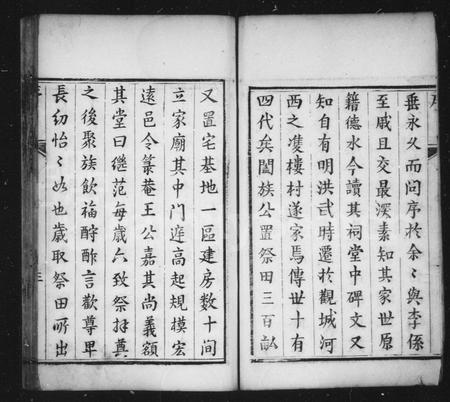 垂永久而問序於余〻與李係
至戚且交最深素知其家世原
籍德水今讀其祠堂中碑文又
知自有明洪武時遷於觀城河
西之雙樓村遂家焉傳世十有
四代矣闔族公置祭田三百畝
又置宅基地一區建房數十間
立家廟其中門庭高起規摸宏
遠邑令菉菴王公嘉其尚義額
其堂曰繼范每歲六致祭拜奠
之後聚族飲福酧酢言歡尊卑
長幼怡〻如也歲取祭田所出
序
三